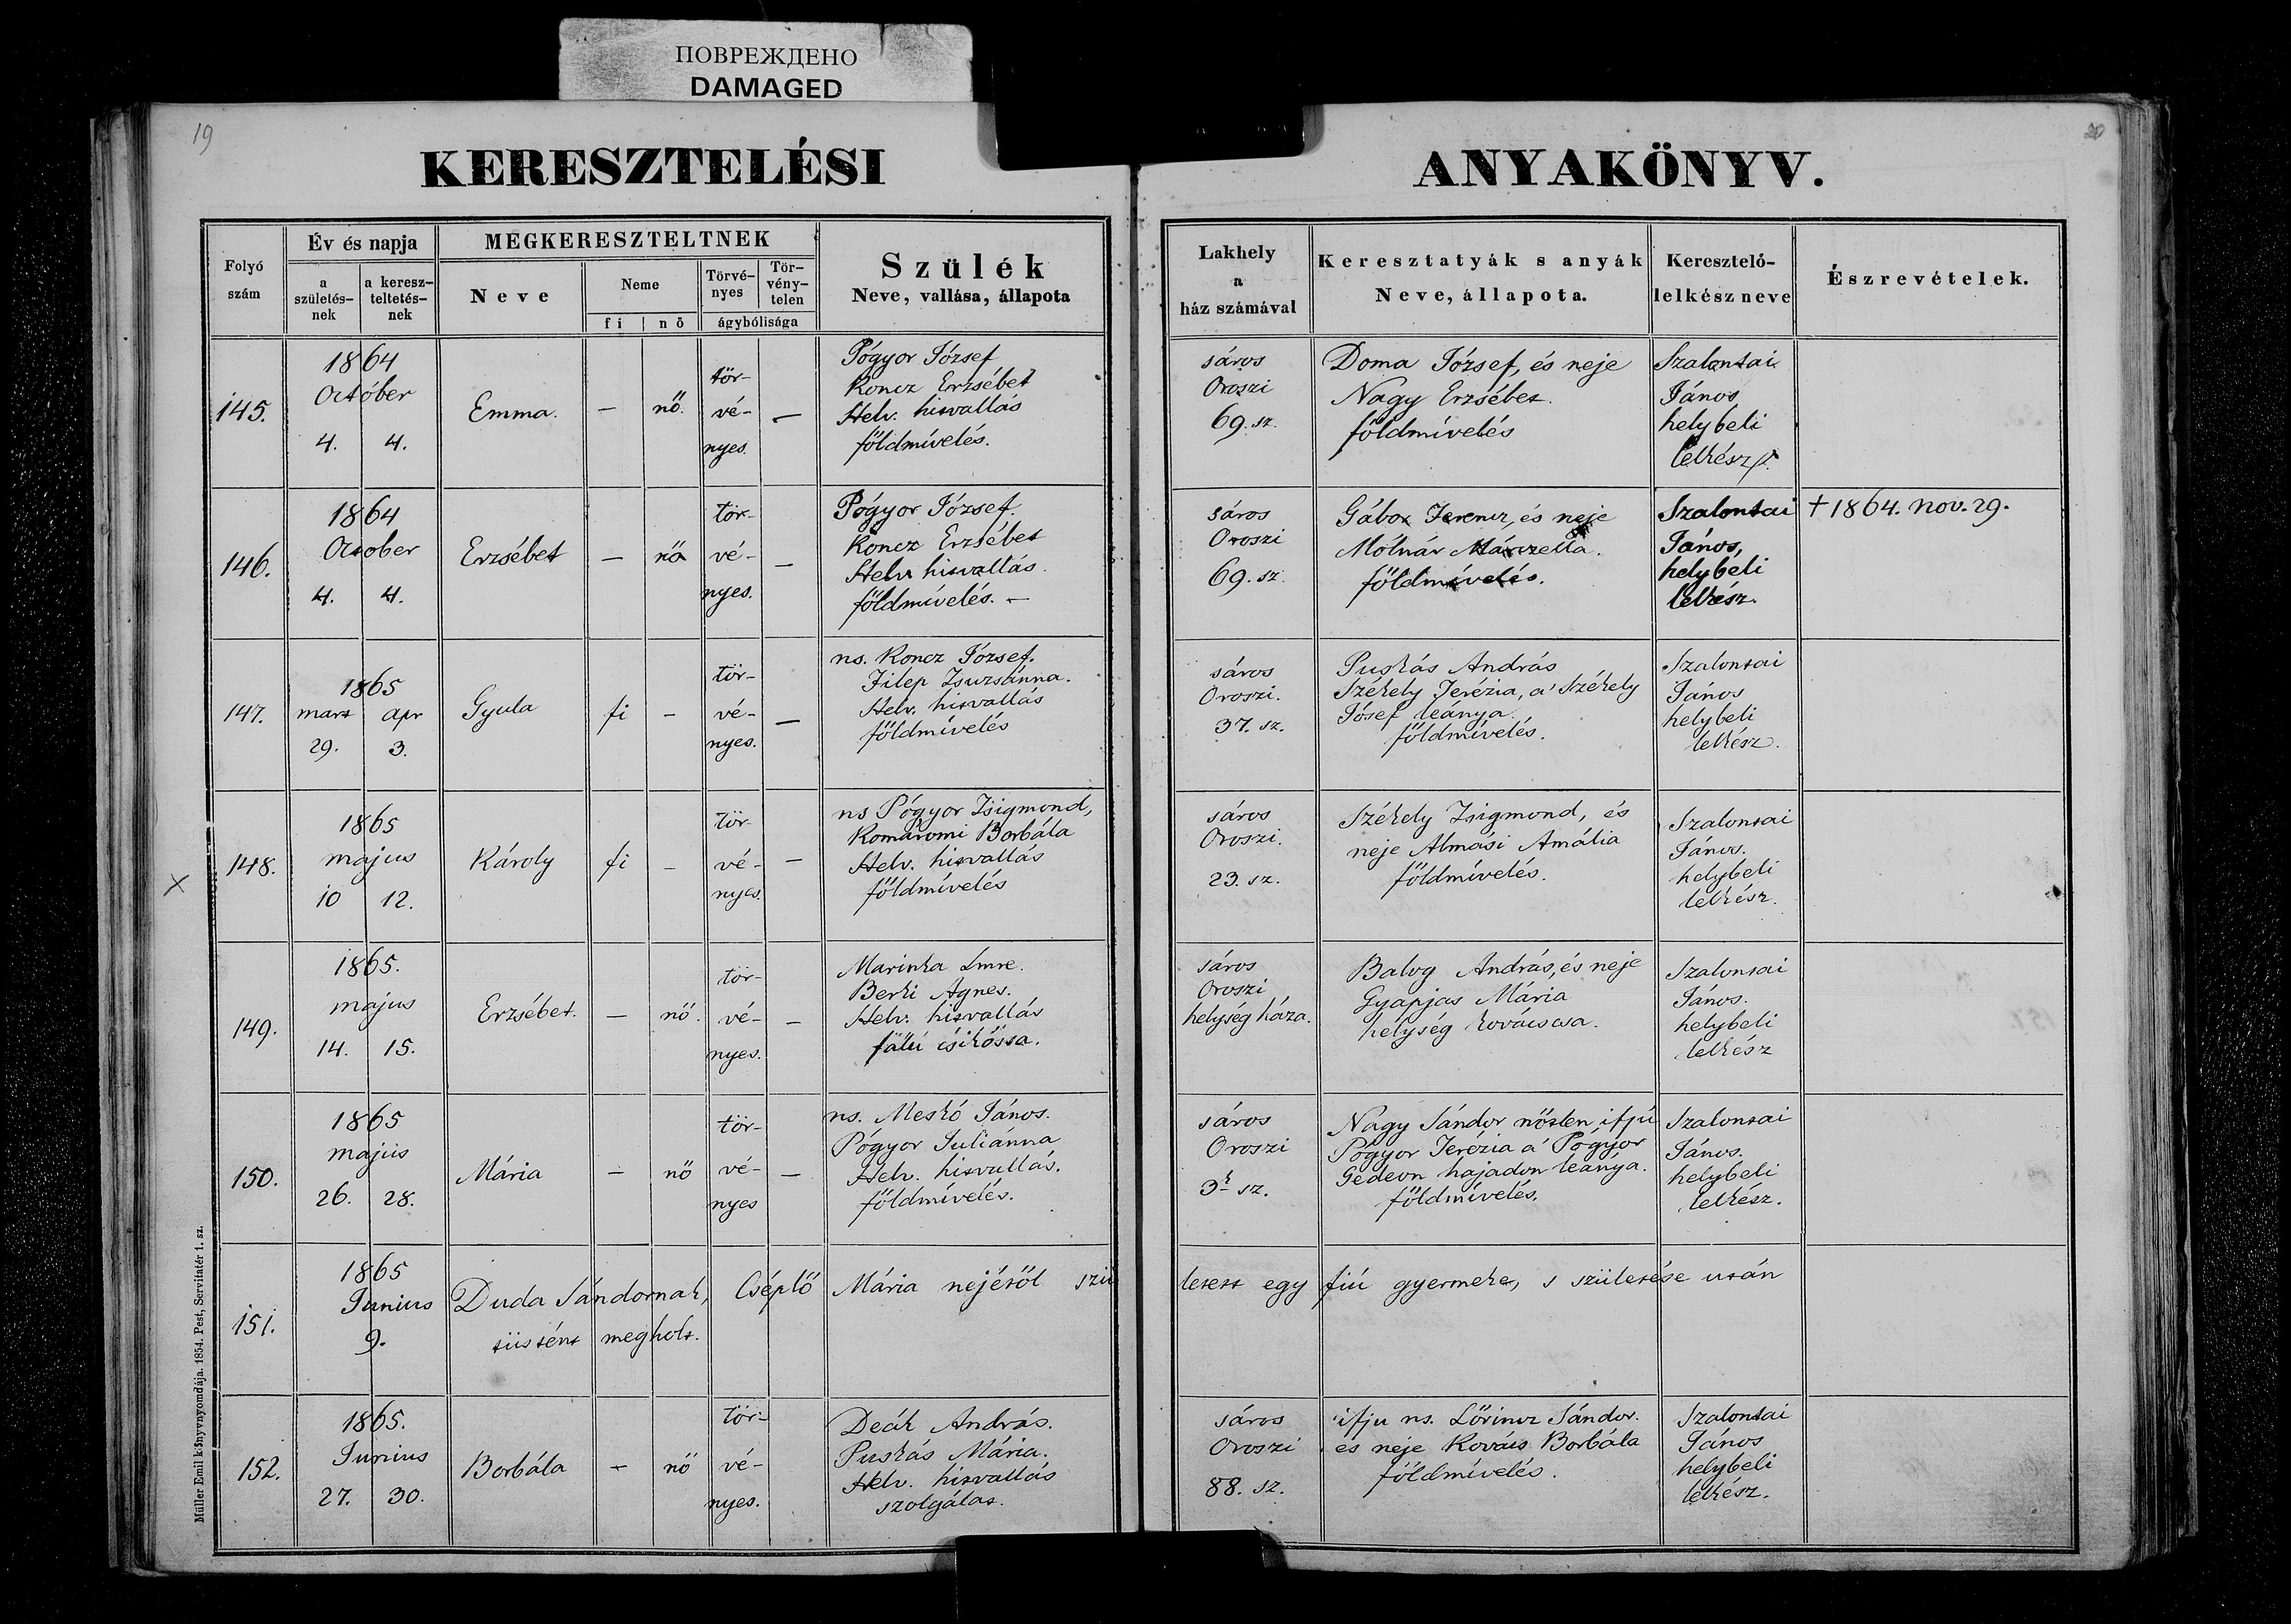 ПОВРЕЖДЕНО
DAMAGED
19
20
KERESZTELÉSI
ANYAKÖNYV.
Folyó szám
Év és napja
a születés-nek
a keresz-teltetés-nek
MEGKERESZTELTNEK
Neve
Neme
fi
nő
Törvé-nyes
Tör-vény-telen
ágybólisága
Szülék
Neve, vallása, állapota
Lakhely
a
ház számával
Keresztatyák s anyák
Neve, állapota.
Keresztelő-
lelkész neve
Észrevételek.
145.
1864
October
4. 4.
Emma.
— nő.
tör-
vé-
nyes.
—
Pógyor József
Koncz Erzsébet
Helv. hitvallás
földmívelés.
sáros
Oroszi
69. sz.
Doma József, és neje
Nagy Erzsébet.
földmívelés
Szalontai
János
helybeli
lelkész
146.
1864
October
4. 4.
Erzsébet
— nő
tör-
vé-
nyes.
—
Pógyor József.
Koncz Erzsébet
Helv hitvallás.
földmívelés. —
sáros
Oroszi
69. sz.
Gábor Ferencz, és neje
Mólnár Márzella.
földmívelés.
Szalontai
János,
helybeli
lelkész.
† 1864. nov. 29.
147.
1865
mart apr
29. 3.
Gyula
fi —
tör-
vé-
nyes.
—
ns. Koncz József.
Filep Zsuzsánna.
Helv. hitvallás
földmívelés
sáros
Oroszi.
37. sz.
Puskás András
Székely Terézia, a' Székely
Jósef leánya
földmívelés.
Szalontai
János
helybeli
lelkész.
X
148.
1865
majus
10 12.
Károly
fi —
tör-
vé-
nyes.
—
ns Pógyor Zsigmond,
Komáromi Borbála
Helv. hitvallás
földmívelés
sáros
Oroszi.
23. sz.
Székely Zsigmond, és
neje Almási Amália
földmívelés.
Szalontai
János.
helybeli
lelkész.
149.
1865.
majus
14. 15.
Erzsébet.
— nő.
tör-
vé-
nyes.
—
Marinka Imre.
Berki Agnes.
Helv. hitvallás
falú csikóssa.
sáros
Oroszi
helység háza.
Balog András, és neje
Gyapjas Mária
helység kovácsa.
Szalontai
János.
helybeli
lelkész
150.
1865
majus
26. 28.
Mária
— nő
tör-
vé-
nyes
—
ns. Meskó János.
Pógyor Juliánna
Helv. hitvallás.
földmívelés.
sáros
Oroszi
3 sz.
Nagy Sándor nőtlen ifjú
Pógyor Terézia a' Pógyor
Gedeon hajadon leánya.
földmívelés.
Szalontai
János.
helybeli
lelkész.
151.
1865
Junius
9.
Duda Sándornak, Cséplő Mária nejétől szü
letett egy fiú gyermeke, s születése után
tüstént megholt.
152.
1865.
Junius
27. 30.
Borbála
— nő
tör-
vé-
nyes.
Deák András.
Puskás Mária.
Helv. hitvallás
szolgálat.
sáros
Oroszi
88. sz.
ifju ns. Lőrincz Sándor.
és neje Kovács Borbála
földmívelés.
Szalontai
János
helybeli
lelkész.
Müller Emil könyvnyomdája. 1854. Pest, Servitatér 1. sz.